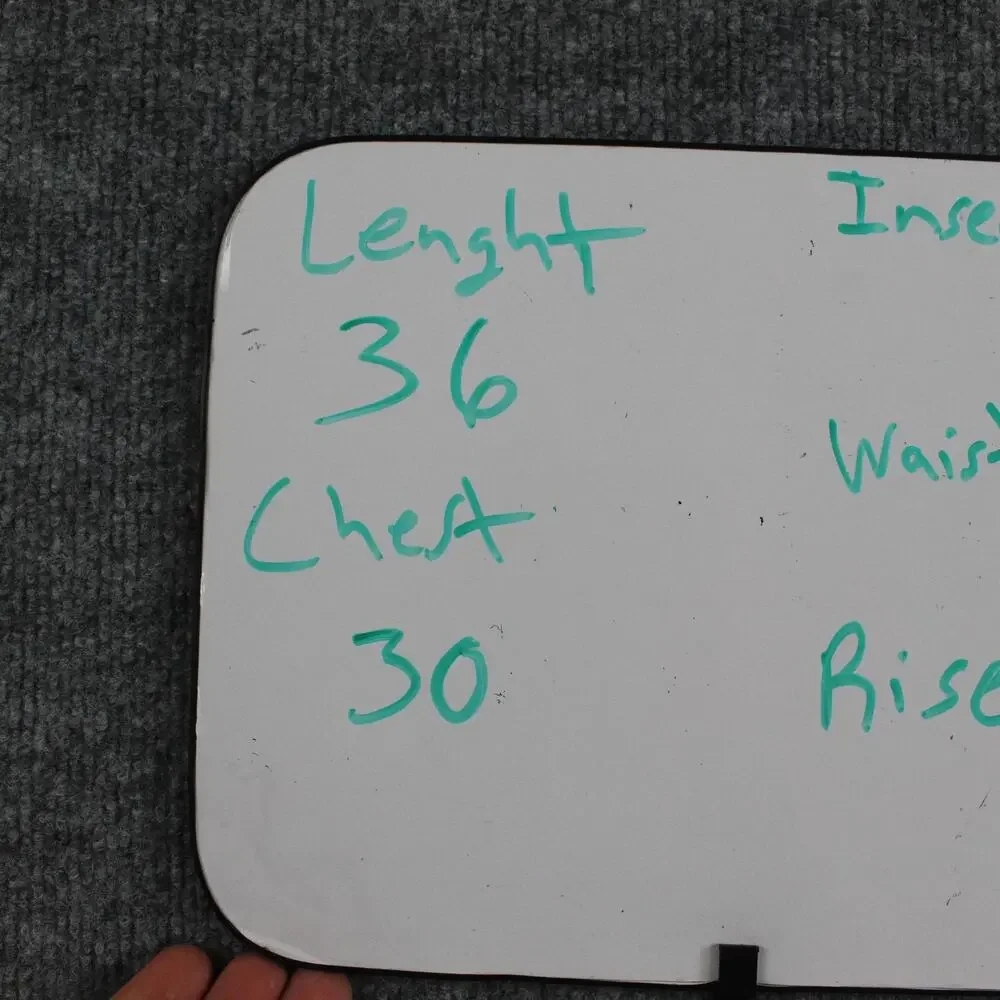 Lenght
36
Chest
30
Inse
Waist
Rise